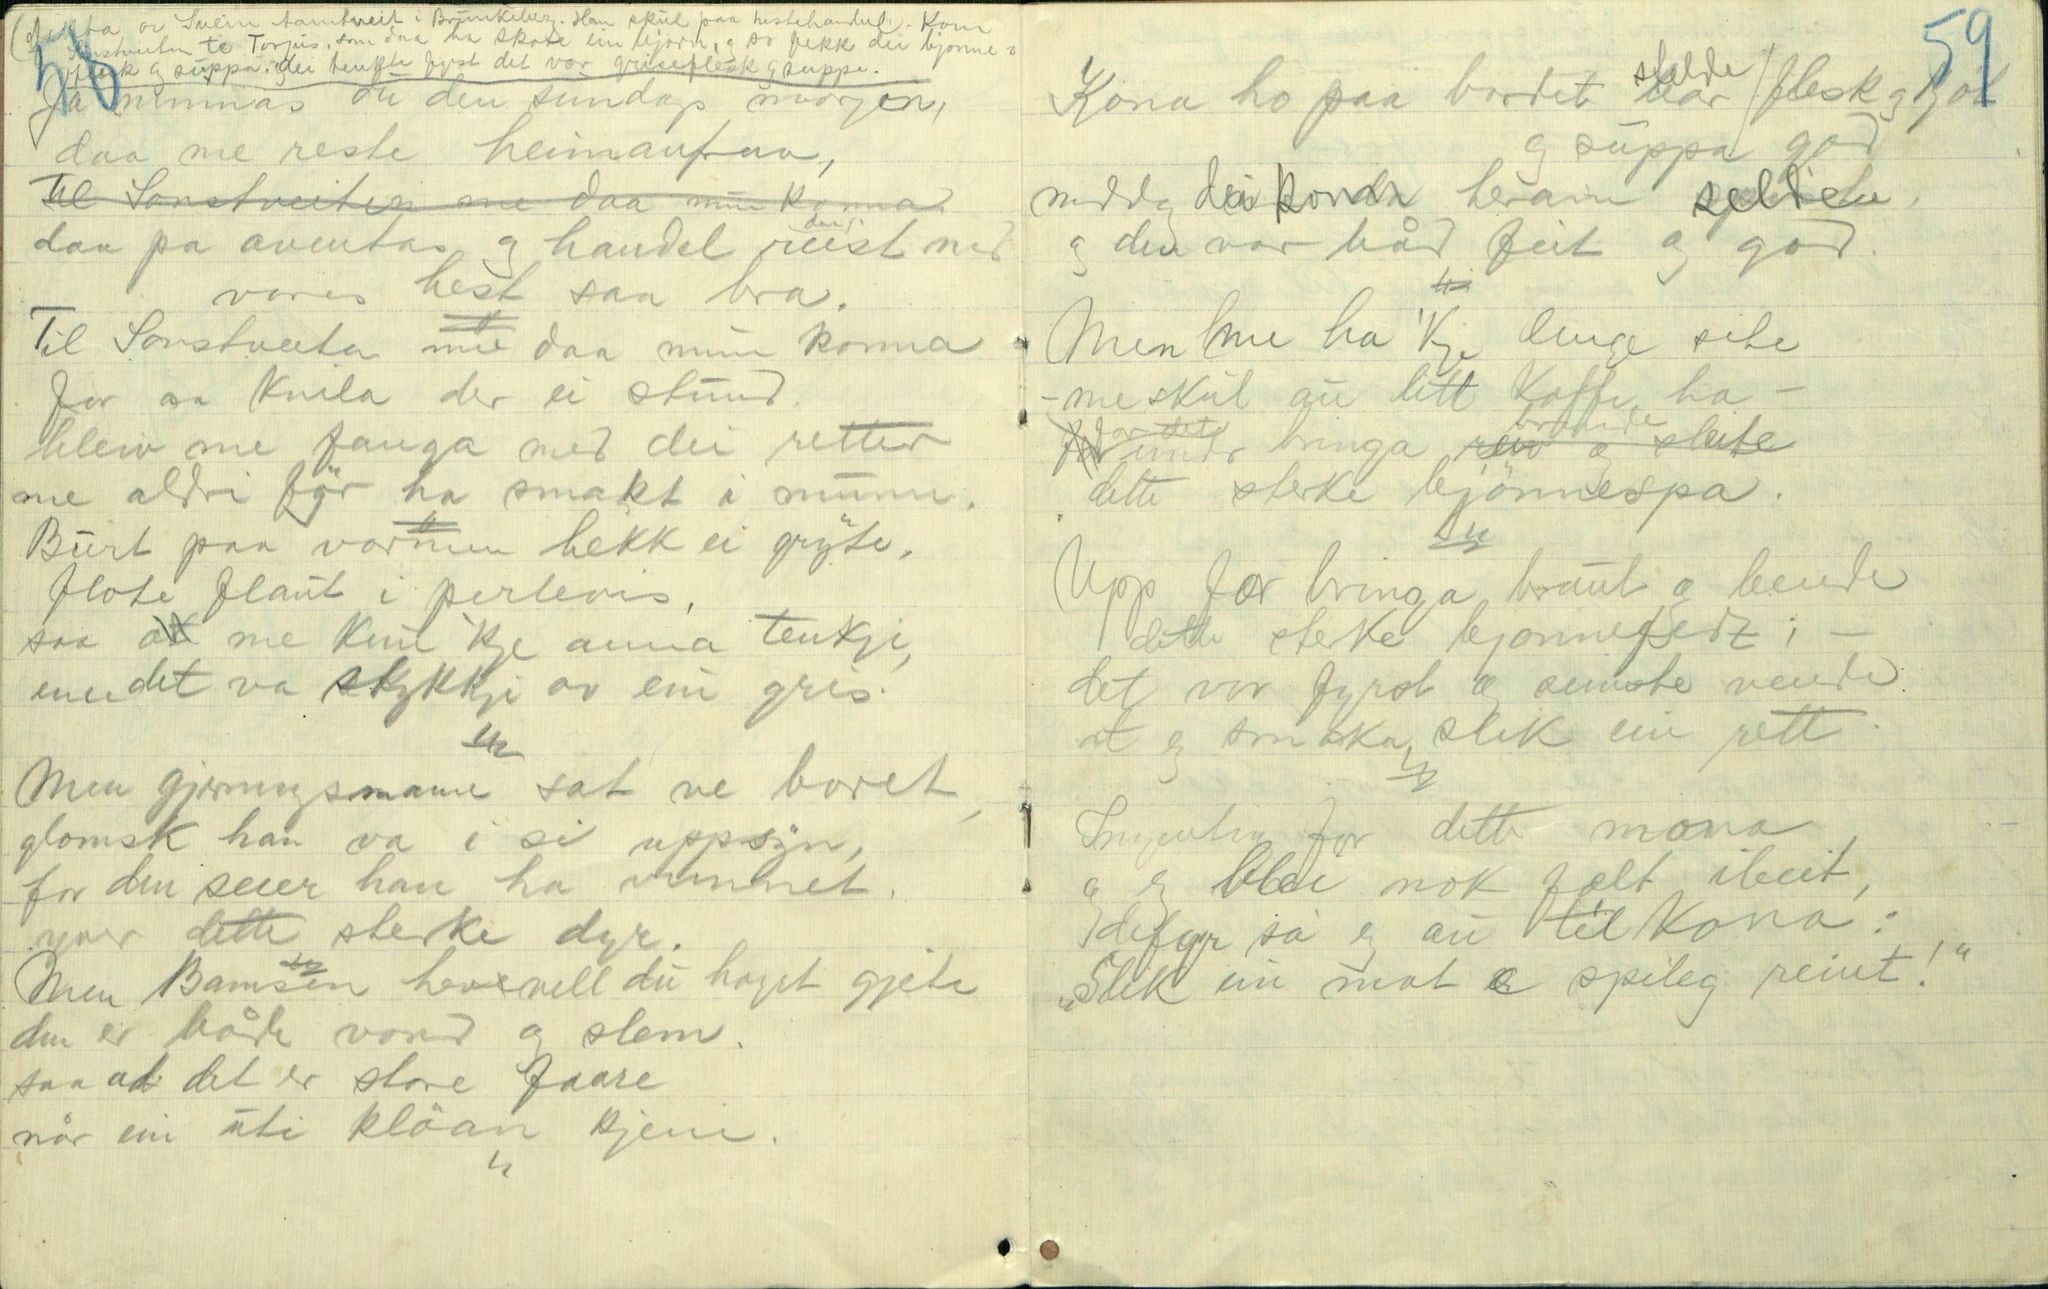 58
(dikta av Svein Tamtveit i Brunkeberg. Han skul paa hestehandel. Kom
Sonstveiten te Torjus, som daa ha skote ein bjørn, g so fekk dei bjønne-
flesk g suppa. dei tenkte fyst det var griseflesk g suppe.
Ja minnas du den sundags morgen,
daa me reste heimaufraa,
Til Sonstveiten me daa mun komma
daa pa aventas g handel daa reist med
vores hest saa bra.
Til Sonstveita me daa mun komma
for aa kvila der ei stund.
bleiv me fanga med dei retter
me aldri før ha smakt i munn.
Burt paa varmen hekk ei gryte,
flote flaut i perlevis,
saa at me kun 'kje anna tenkje,
enn det va stykkje av ein gris.
Men gjerningsmann sat ve boret,
glomsk han va i si uppsyn,
for den seier han ha vunnet
yver dette sterke dyr.
Men Bamsen hevevell du haget gjete
den er både vond g slem.
saa at det er store faare
når ein uti klöan kjem.
59
Kona ho paa bordet stelde bar / flesk g kjöt
g suppa god
nedig dei konn heram seldiele,
g den var båd feit g god.
Men me ha 'kje lenge sete
- me skul au litt kaffi ha -
for det under bringa brende reiv g sleite
dette sterke bjönnespa.
Upp for bringa braut g bende
dette sterke bjonnefedt; -
det var fyrst g seinste vende
at eg smaka slik ein rett.
Ingenting for dette mona
g eg blei nok galt ibeit,
defyr sa eg au til Kona:
"Slik ein mat e spileg reint!"